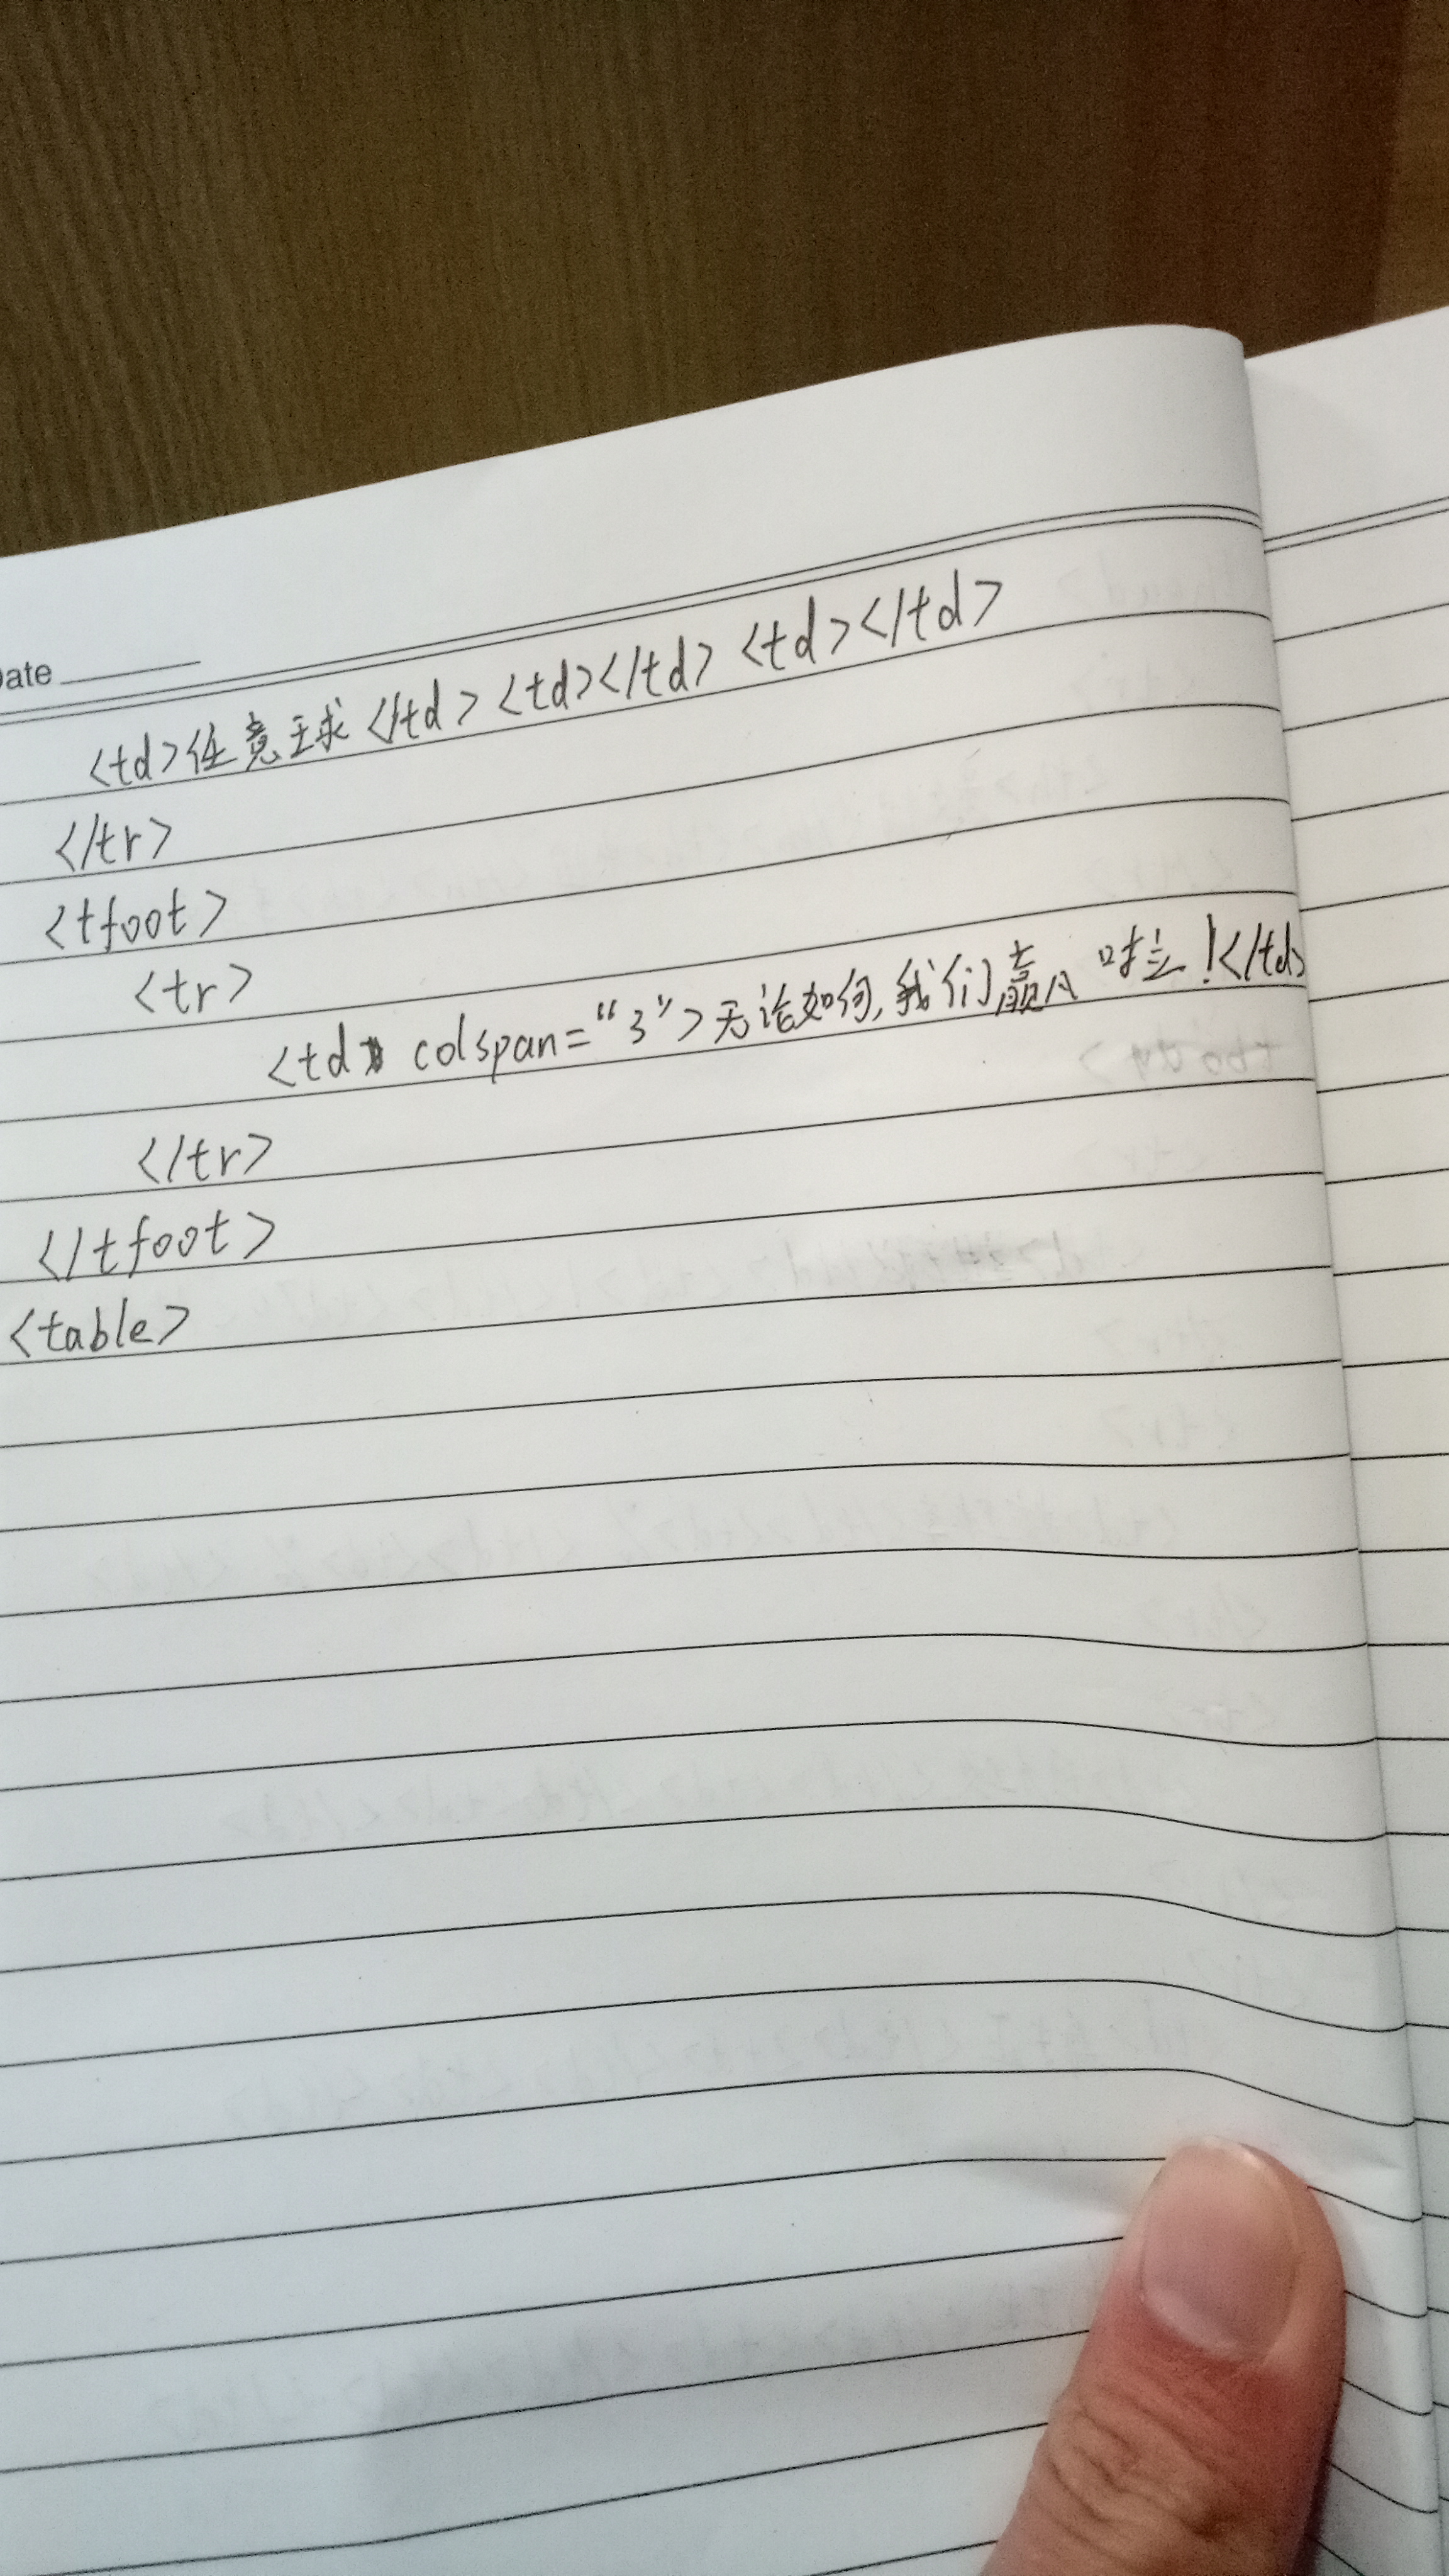 Date
<td>任意球</td><td></td><td></td>
</tr>
<tfoot>
<tr>
<td colspan="3">无论如何,我们赢!</td>
</tr>
</tfoot>
<table>